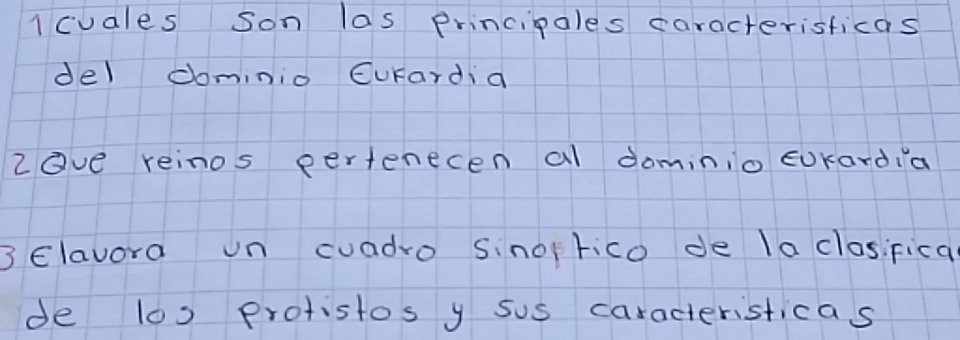 1 cuales son las principales caracteristicas
del dominio Eukardia
2 Que reinos pertenecen al dominio eukardia
3 Elavora un cuadro sinoptico de la clasifica
de los protistos y sus caracteristicas